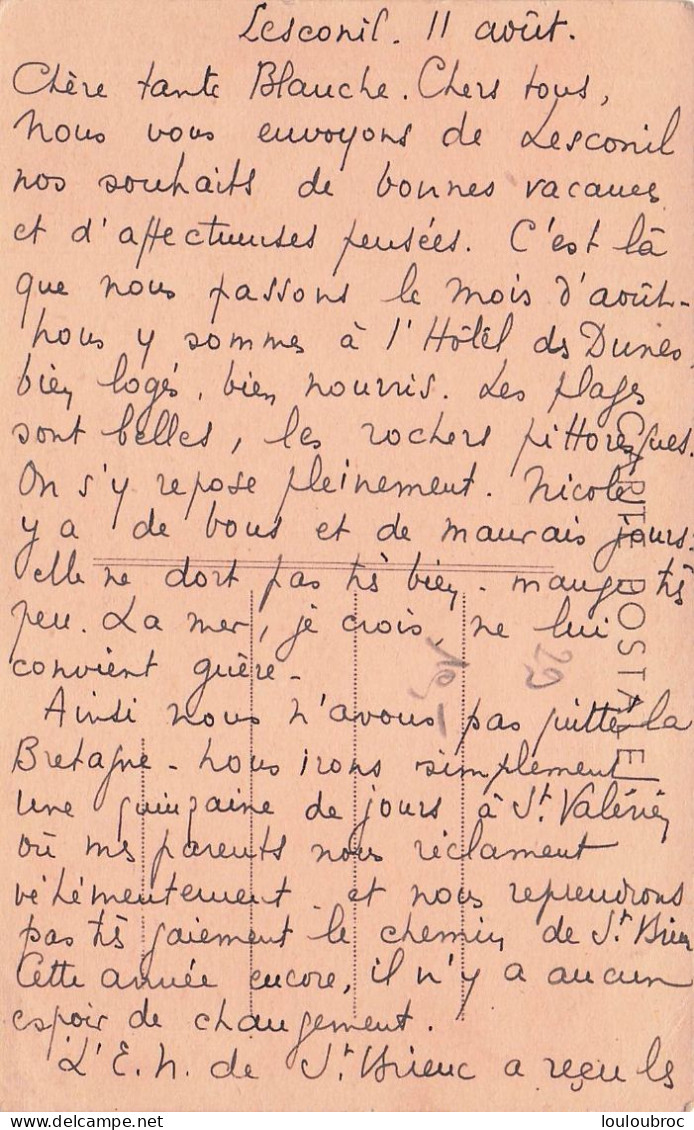 Lesconil. 11 août.
Chère tante Blanche. Chers tous,
nous vous envoyons de Lesconil
nos souhaits de bonnes vacances
et d'affectueuses pensées. C'est là
que nous passons le mois d'août -
nous y sommes à l'Hôtel des Dunes,
bien logés, bien nourris. Les plages
sont belles, les rochers pittoresques.
On s'y repose pleinement. Nicole
y a de bons et de mauvais jours :
elle ne dort pas très bien - mange très
peu. La mer, je crois, ne lui
convient guère -
Ainsi nous n'avons pas quitté la
Bretagne - nous irons simplement
une quinzaine de jours à St. Valérien
où mes parents nous réclament
véhémentement - et nous reprendrons
pas très gaiement le chemin de St. Brieuc
Cette année encore, il n'y a aucun
espoir de changement.
L'E.N. de St. Brieuc a reçu les
CARTE POSTALE
29
10,-
louloubroc.com